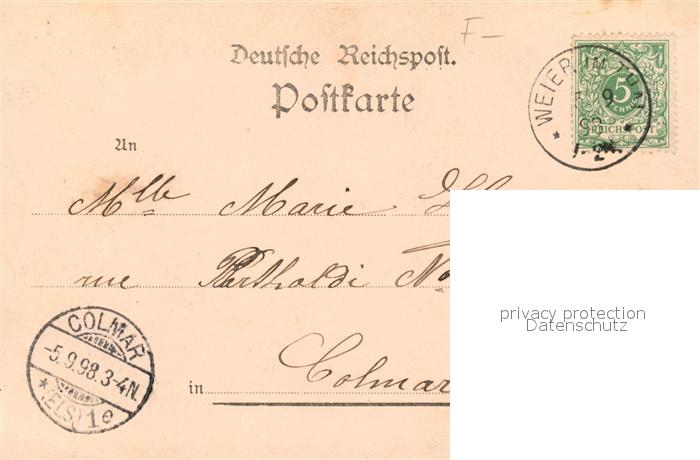 F–
Deutsche Reichspost.
Postkarte
WEIER IM THAL
9
98
1-2N.
5
PFENNIG
REICHSPOST
An
Mlle Marie
rue Bartholdi No
privacy protection
Datenschutz
COLMAR
-5.9.98.3-4N.
* (ELS.) 1e
in Colmar